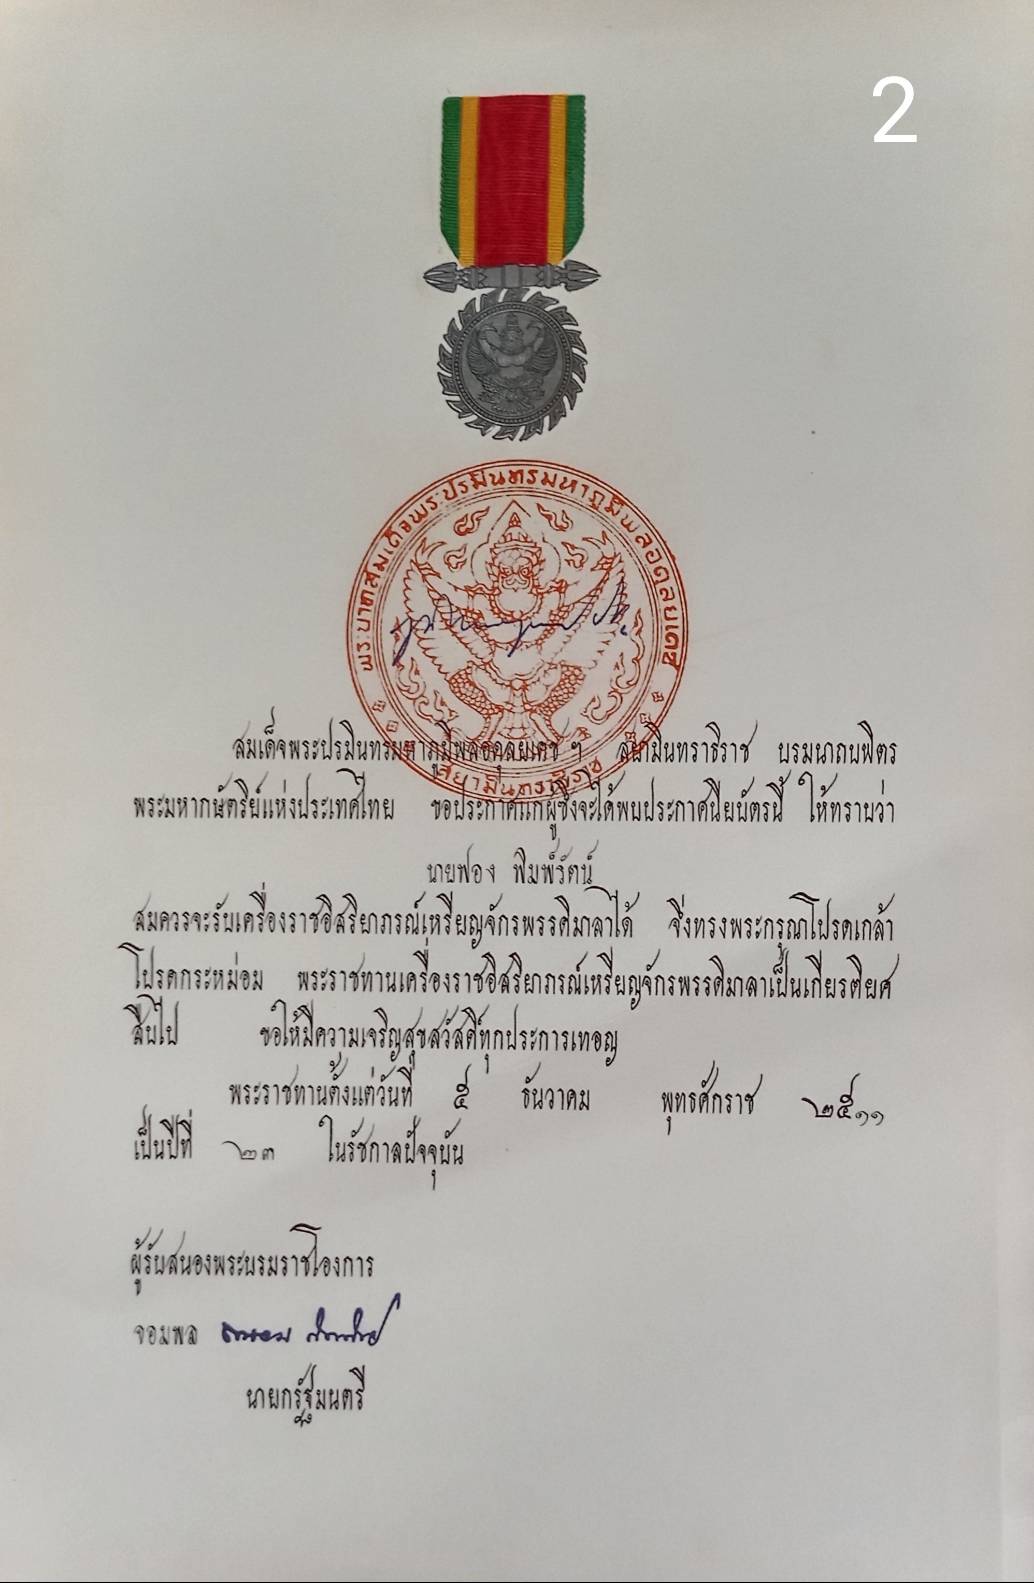 2
พระบาทสมเด็จพระปรมินทรมหาภูมิพลอดุลยเดช
สยามินทราธิราช
สมเด็จพระปรมินทรมหาภูมิพลอดุลยเดช ฯ สยามินทราธิราช บรมนาถบพิตร
พระมหากษัตริย์แห่งประเทศไทย ขอประกาศแก่ผู้ซึ่งจะได้พบประกาศนียบัตรนี้ ให้ทราบว่า
นายฟอง พิมพ์รัตน์
สมควรจะรับเครื่องราชอิสริยาภรณ์เหรียญจักรพรรดิมาลาได้ จึ่งทรงพระกรุณาโปรดเกล้า
โปรดกระหม่อม พระราชทานเครื่องราชอิสริยาภรณ์เหรียญจักรพรรดิมาลาเป็นเกียรติยศ
สืบไป ขอให้มีความเจริญสุขสวัสดิ์ทุกประการเทอญ
พระราชทานตั้งแต่วันที่ ๕ ธันวาคม พุทธศักราช ๒๕๑๑
เป็นปีที่ ๒๓ ในรัชกาลปัจจุบัน
ผู้รับสนองพระบรมราชโองการ
จอมพล ถนอม กิตติขจร
นายกรัฐมนตรี